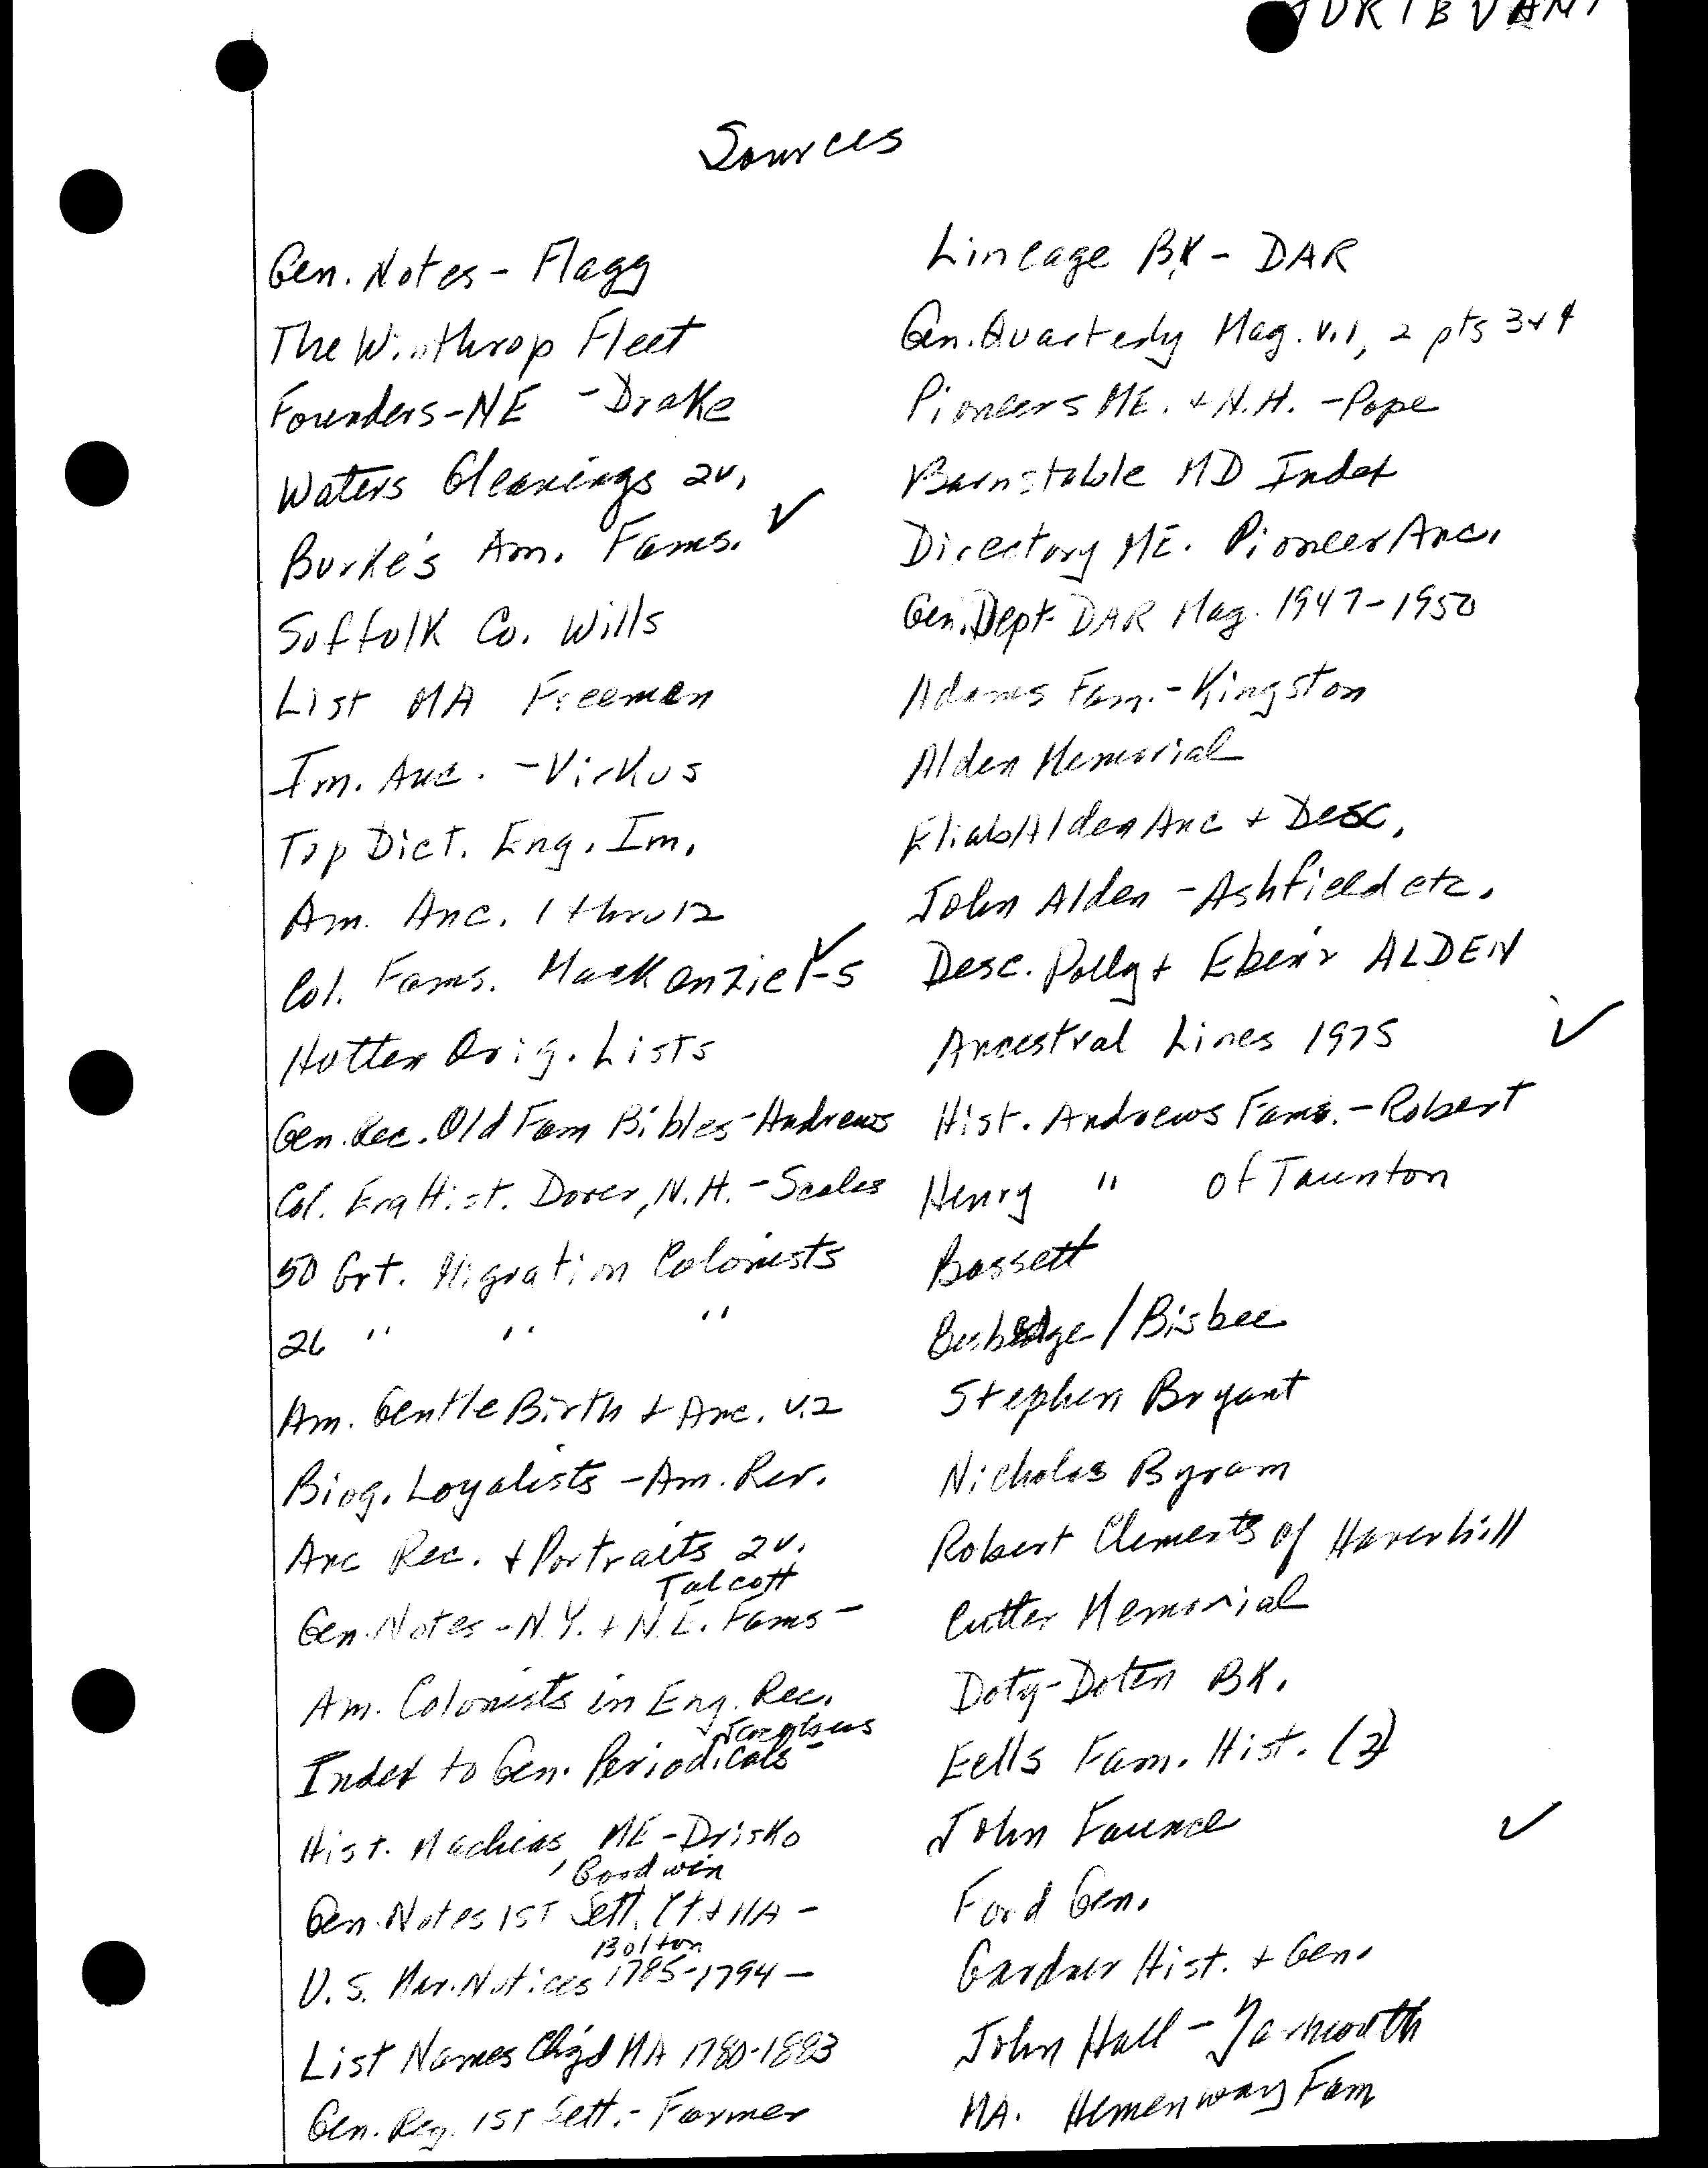 Sources
Gen. Notes - Flagg
The Winthrop Fleet
Founders - NE - Drake
Waters Gleanings 2v.
Burke's Am. Fams. ✓
Suffolk Co. Wills
List MA Freemen
Im. Anc. - Virkus
Top Dict. Eng. Im.
Am. Anc. 1 thru 12
Col. Fams. MacKenzie 1-5 ✓
Hotten Orig. Lists
Gen. Rec. Old Fam Bibles - Andrews
Col. Era Hist. Dover, N.H. - Scales
50 Grt. Migration Colonists
26 " " "
Am. Gentle Birth + Anc. v.2
Biog. Loyalists - Am. Rev.
Anc Rec. + Portraits 2v.
Talcott
Gen. Notes - N.Y. + N.E. Fams -
Am. Colonists in Eng. Rec.
Jacobus
Index to Gen. Periodicals -
Hist. Machias, ME - Drisko
Goodwin
Gen. Notes 1st Sett. Ct. + MA -
Bolton
U.S. Mar. Notices 1785-1794 -
List Names Chgd MA 1780-1883
Gen. Reg. 1st Sett. - Farmer
Lineage Bk - DAR
Gen. Quarterly Mag. v.1, 2 pts 3+4
Pioneers ME. + N.H. - Pope
Barnstable MD Index
Directory ME. Pioneer Anc.
Gen. Dept. DAR Mag. 1947-1950
Adams Fam. - Kingston
Alden Memorial
Eliab Alden Anc + Desc.
John Alden - Ashfield etc.
Desc. Polly + Eben'r ALDEN
Ancestral Lines 1975 ✓
Hist. Andrews Fams. - Robert
Henry " of Taunton
Bassett
/ Bisbee
Stephen Bryant
Nicholas Byram
Robert Clements of Haverhill
Cutter Memorial
Doty-Doten BK.
Eells Fam. Hist.
John Faunce ✓
Ford Gen.
Gardner Hist. + Gen.
John Hall - Yarmouth
MA. Hemenway Fam